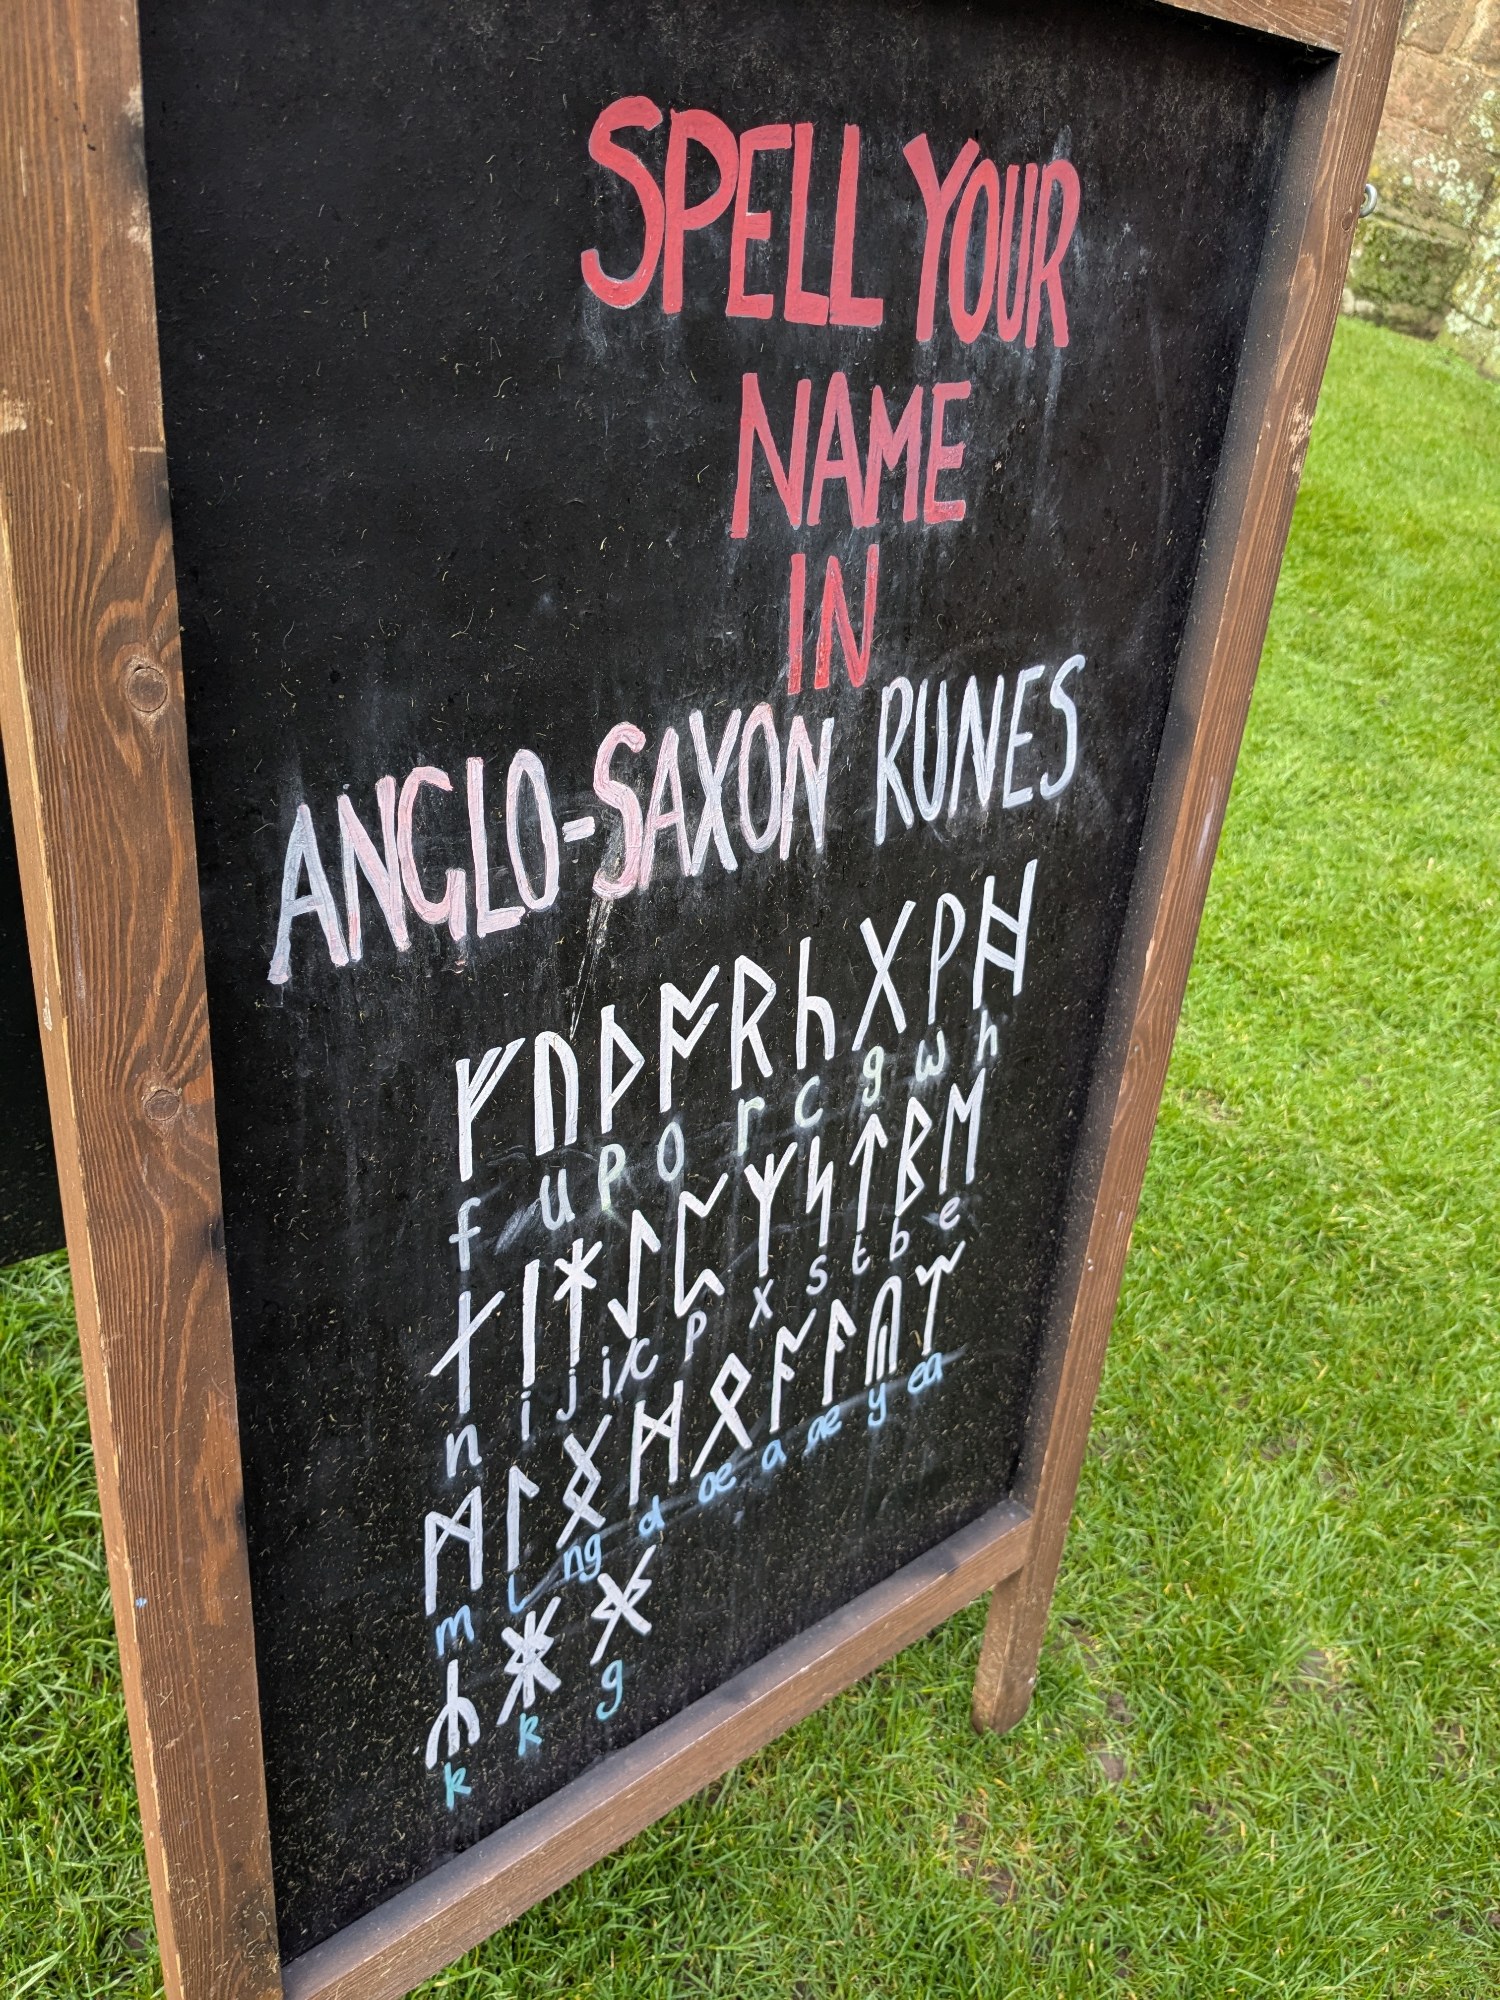 SPELL YOUR
NAME
IN
ANGLO-SAXON RUNES
ᚠ ᚢ ᚦ ᚩ ᚱ ᚳ ᚷ ᚹ ᚻ
f u p o r c g w h
ᚾ ᛁ ᛡ ᛇ ᛈ ᛉ ᛋ ᛏ ᛒ ᛖ
n i j i/c p x s t b e
ᛗ ᛚ ᛝ ᛞ ᛟ ᚪ ᚫ ᚣ ᛠ
m l ng d oe a ae y ea
ᛣ ᛤ ᚸ
k k g